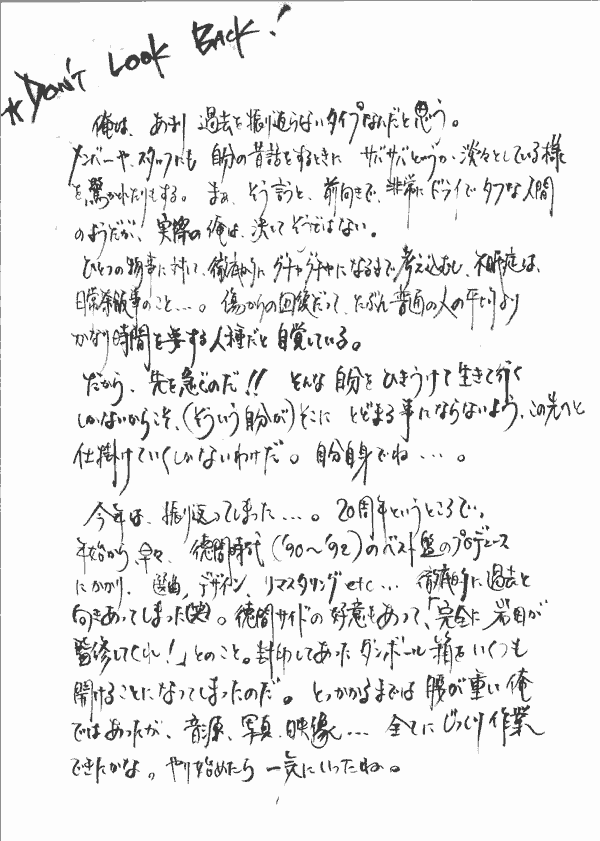 *DON'T LOOK BACK!
俺は、あまり過去を振り返らないタイプなんだと思う。
メンバーや、スタッフにも 自分の昔話をするときに サバサバというか、淡々としている様
を驚かれたりもする。まぁ、そう言うと、前向きで、非常にドライでタフな人間
のようだが、実際の俺は、決してそうではない。
ひとつの物事に対して、徹底的にグチャグチャになるまで考え込むし、不眠症は、
日常茶飯事のこと…。傷からの回復だって、たぶん普通の人の平均より
かなり時間を要する人種だと自覚している。
だから、先を急ぐのだ!! そんな自分をひきうけて生きて行く
しかないからこそ、(そういう自分が)そこに とどまる事にならないよう、この先へと
仕掛けていくしかないわけだ。自分自身でね…。
今年は、振り返ってしまった…。20周年というところで、
年始から、早々、徳間時代('90〜'92)のベスト盤のプロデュース
にかかり、選曲、デザイン、リマスタリング etc… 徹底的に過去と
向きあってしまった(笑)。徳間サイドの好意もあって、「完全に岩田が
監修してくれ!」とのこと。封印してあったダンボール箱をいくつも
開けることになってしまったのだ。とっかかるまでは腰が重い俺
ではあったが、音源、写真、映像… 全てにじっくり作業
できたかな。やり始めたら一気にいったね。